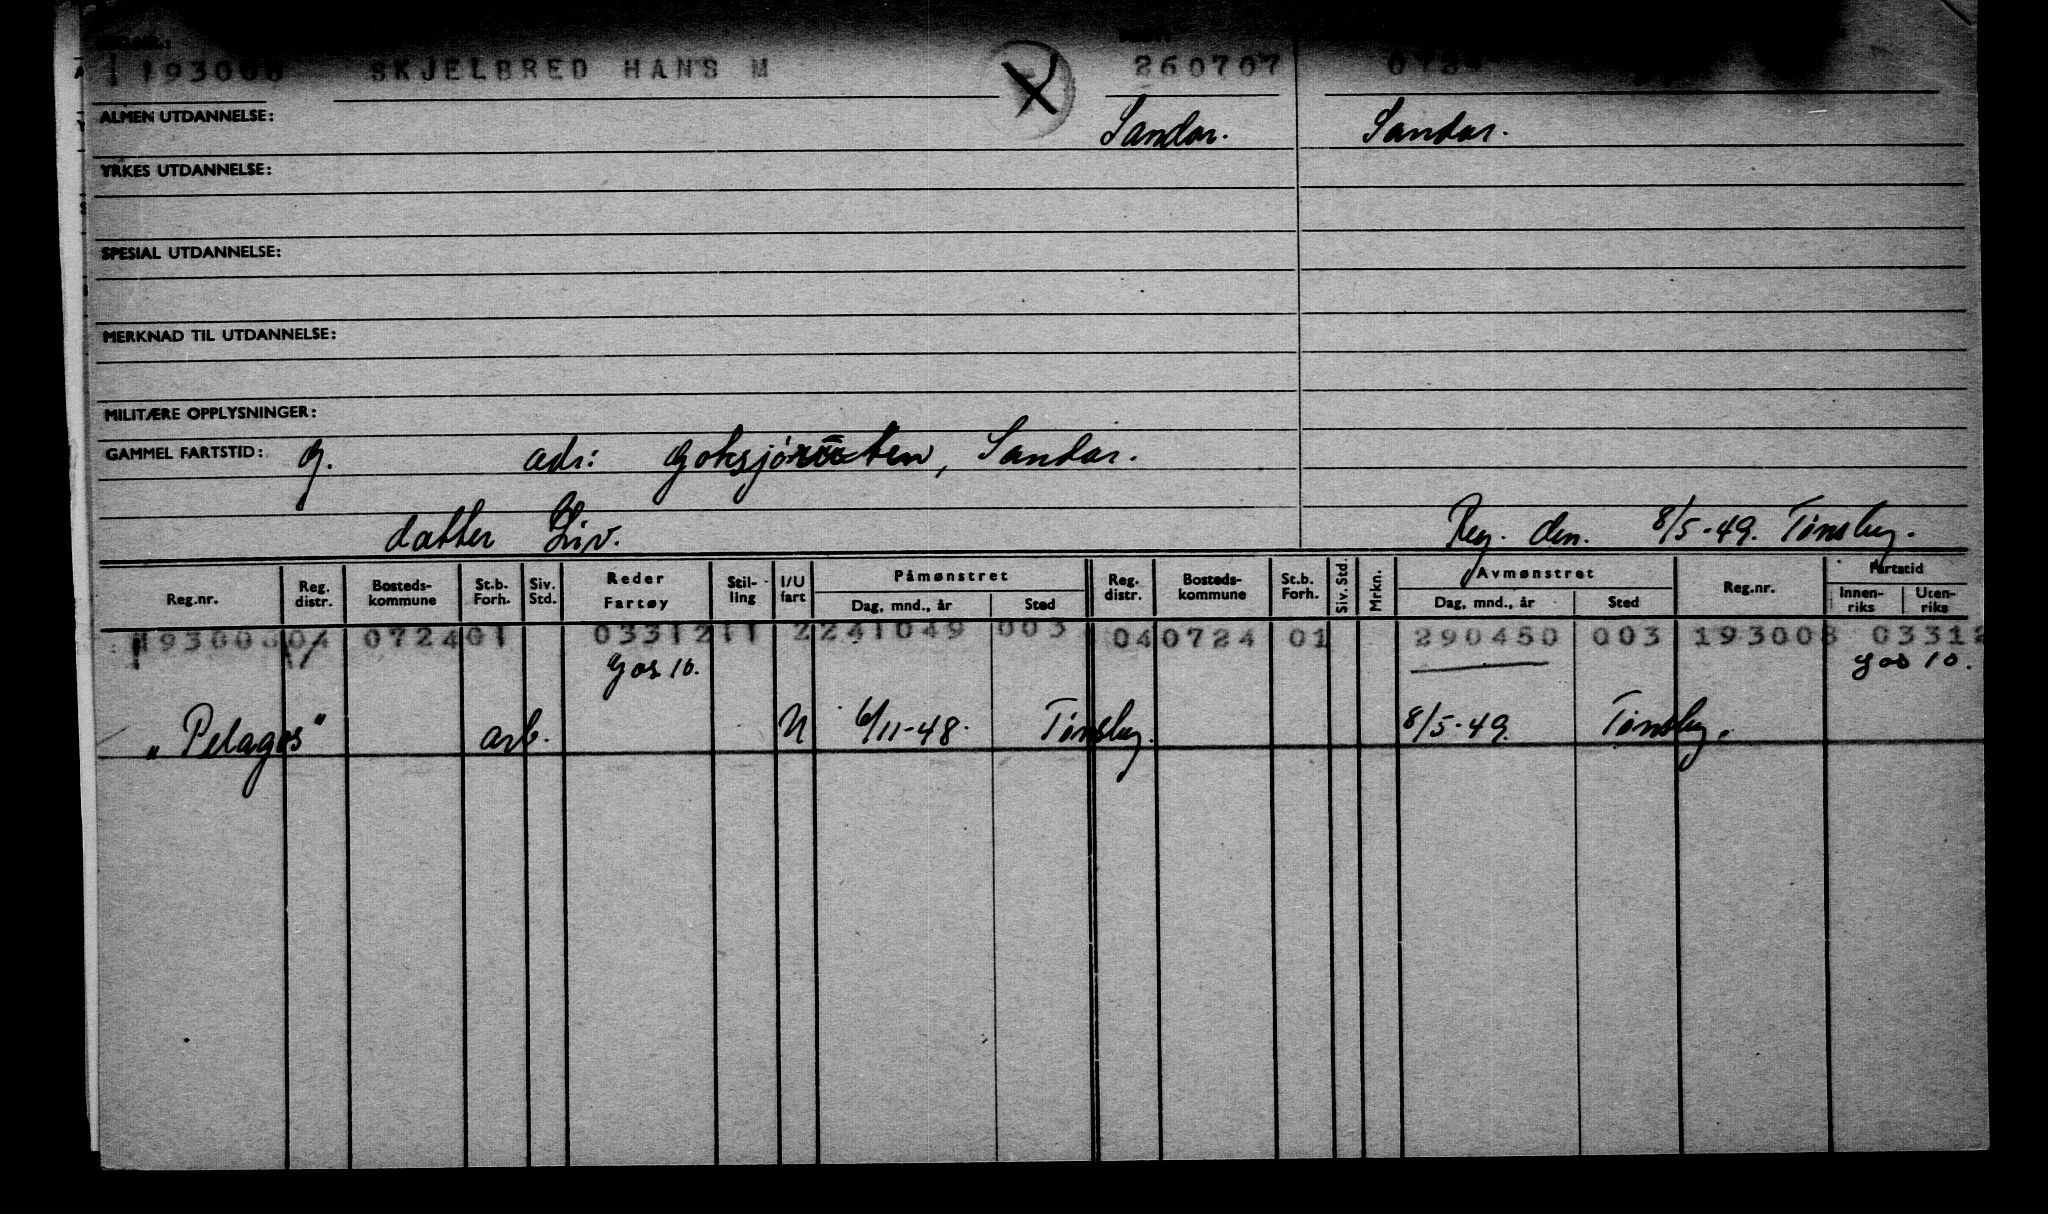 193008 SKJELBRED HANS M 260707
ALMEN UTDANNELSE: Sandar. Sandar.
YRKES UTDANNELSE:
SPESIAL UTDANNELSE:
MERKNAD TIL UTDANNELSE:
MILITÆRE OPPLYSNINGER:
GAMMEL FARTSTID: g. adr: Sandar.
datter Liv. Reg. den. 8/5-49. Tønsberg.
Reg.nr. Reg. distr. Bosteds-kommune St.b. Forh. Siv. Std. Reder Fartøy Stil-ling I/U fart Påmønstret Dag, mnd., år Sted Reg. distr. Bosteds-kommune St.b. Forh. Siv. Std. Mrkn. Avmønstret Dag, mnd., år Sted Reg.nr. Fartstid Innen-riks Uten-riks
193008 04 0724 01 03312 11 2 241049 003 04 0724 01 290450 003 193008 03312
Gos 10. gos 10.
„Pelagos" arb. U 6/11-48. Tønsberg. 8/5-49. Tønsberg.